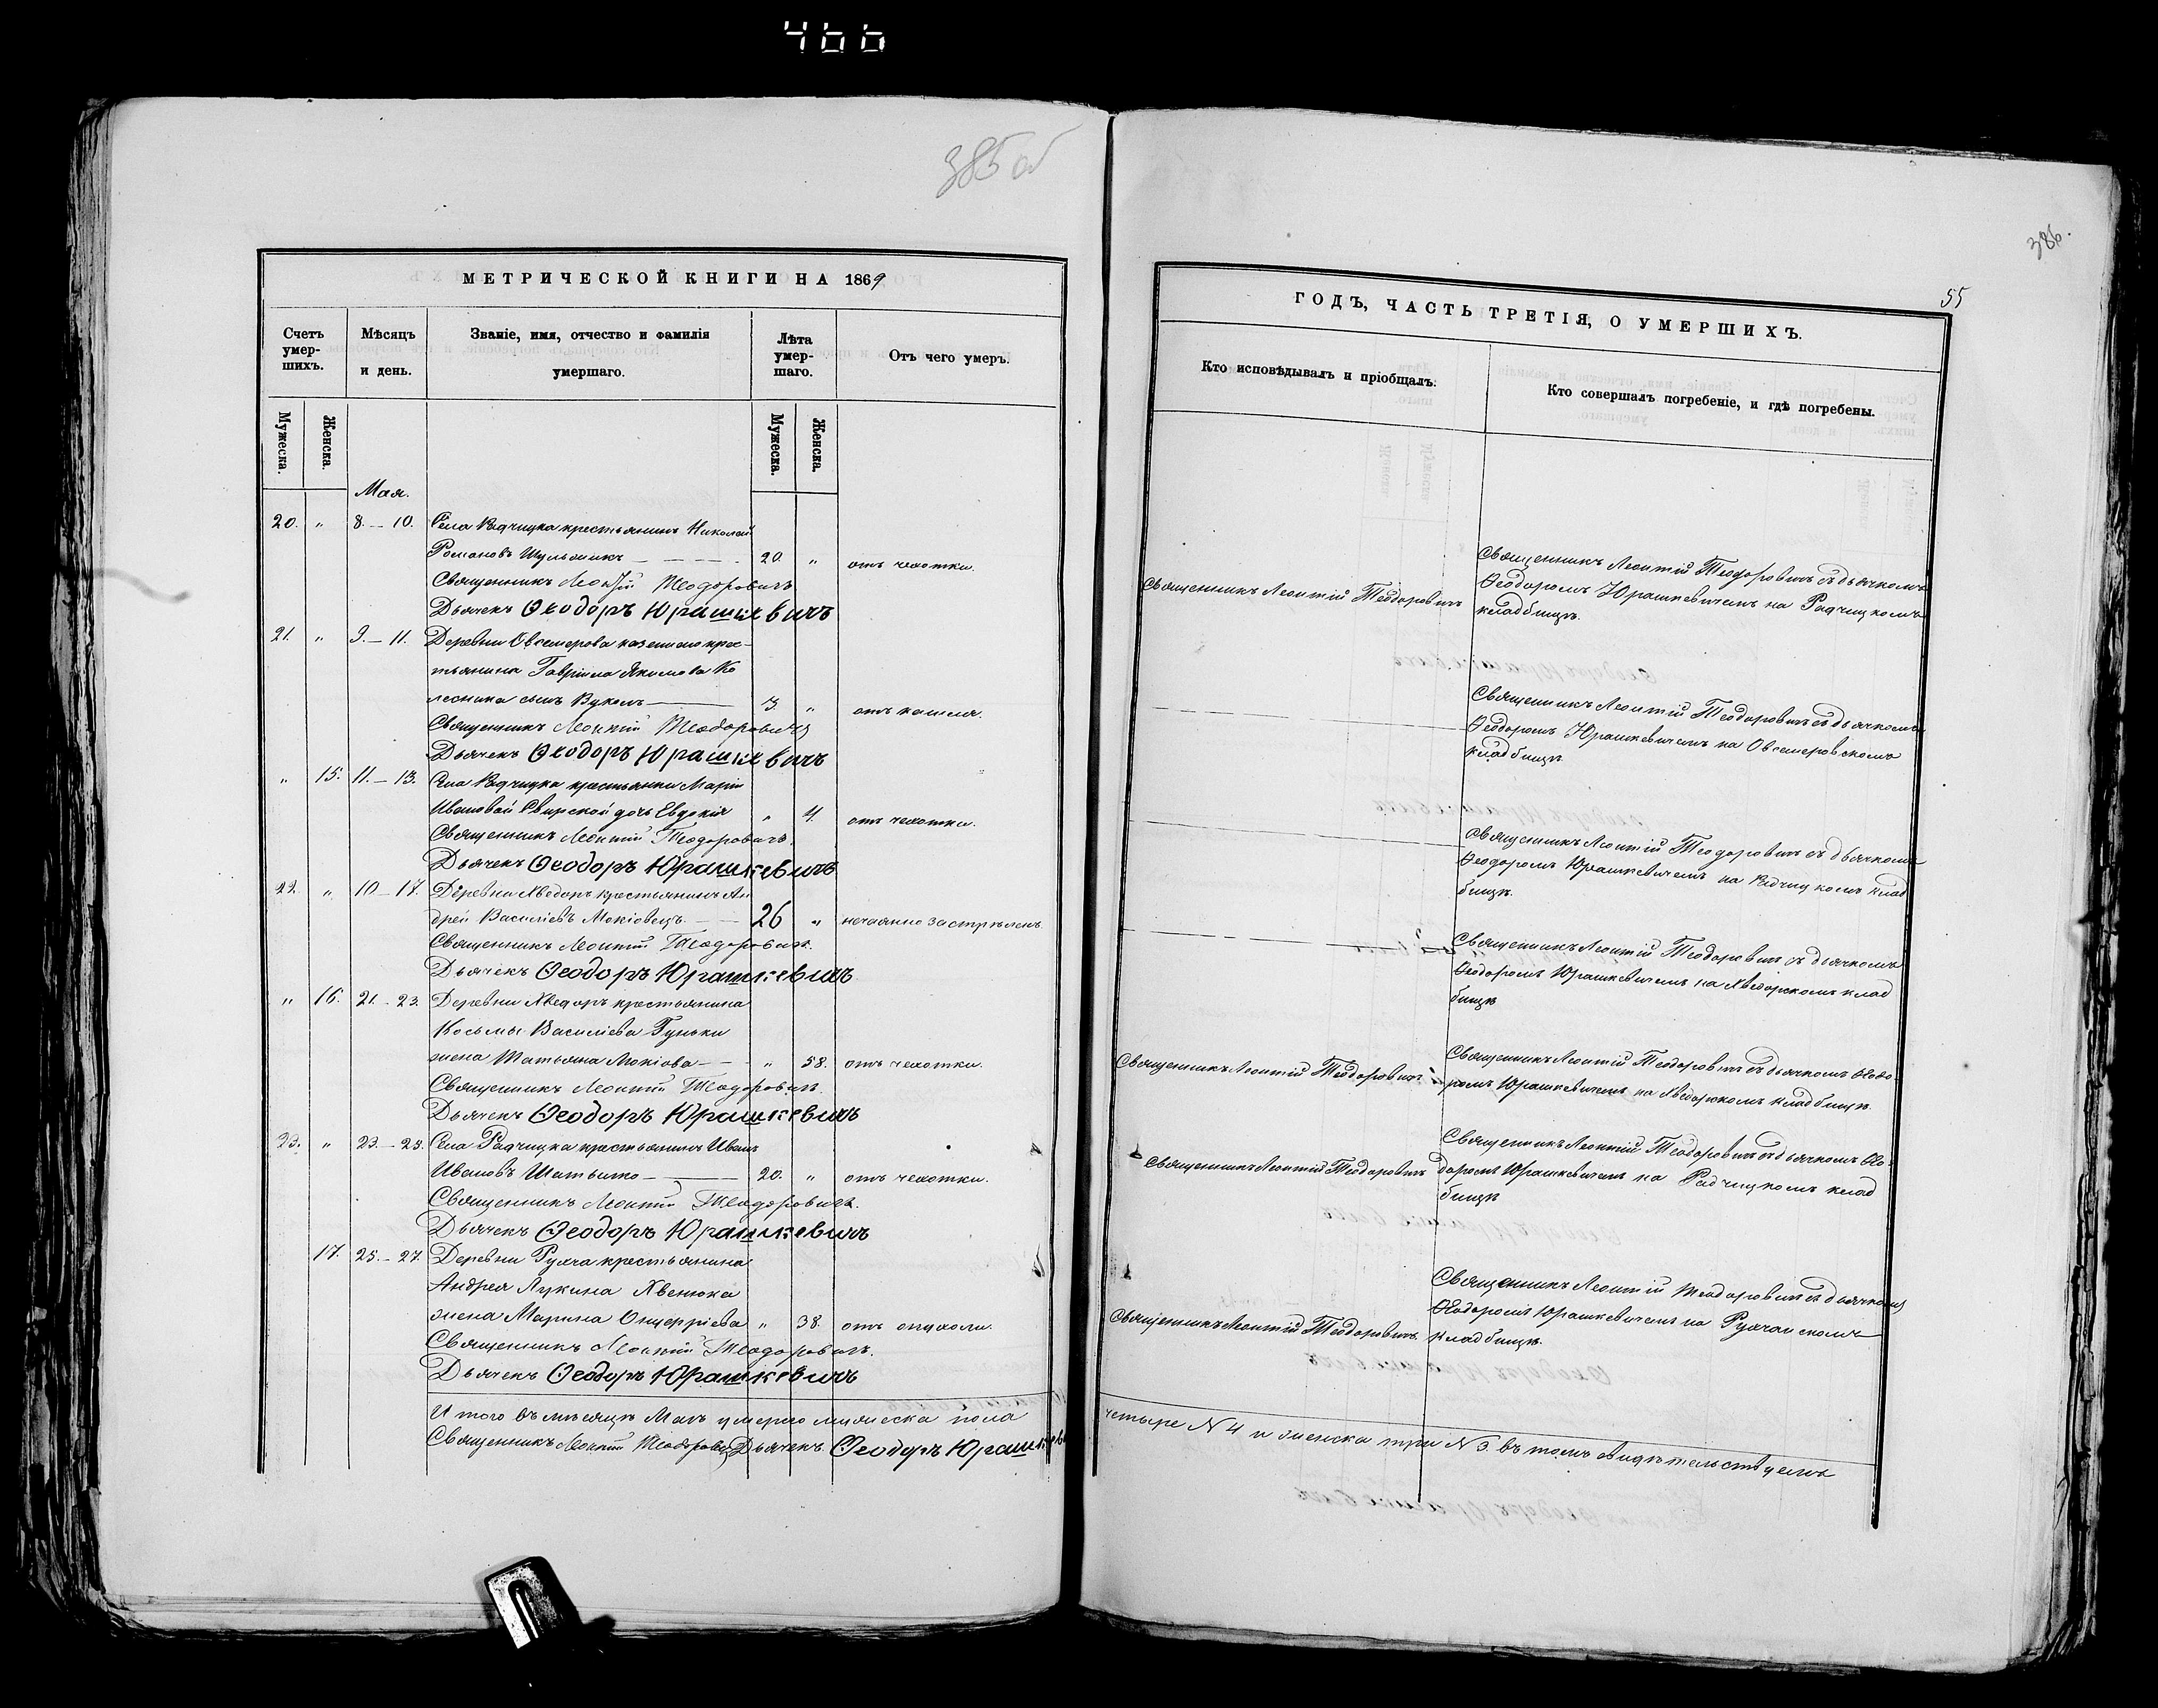 466
385 об
МЕТРИЧЕСКОЙ КНИГИ НА 1869
Счетъ умер-шихъ.
Мѣсяцъ и день.
Званіе, имя, отчество и фамилія умершаго.
Лѣта умер-шаго.
Отъ чего умеръ.
Мужеска.
Женска.
Мужеска.
Женска.
Мая.
20. " 8.–10. Села Радчицка крестьянинъ Николай
Романовъ Шульжикъ 20. " отъ чехотки.
Священникъ Леонтій Теодоровичъ
Дьячекъ Ѳеодоръ Юрашкевичъ
21. " 9.–11. Деревни Овсемерова казеннаго крес-
тьянина Гавріила Якимова Ко
лесника сынъ Вуколъ 3. " отъ кашля.
Священникъ Леонтій Теодоровичъ
Дьячекъ Ѳеодоръ Юрашкевичъ
" 15. 11.–13. Села Радчицка крестьянки Маріи
Ивановой Свирской дочь Евдокія " 4. отъ чехотки.
Священникъ Леонтій Теодоровичъ.
Дьячекъ Ѳеодоръ Юрашкевичъ
22. " 10–17. Деревни Хведоръ крестьянинъ Ан
дрей Василіевъ Мокіовецъ. 26 " нечаянно застрѣленъ
Священникъ Леонтій Теодоровичъ.
Дьячекъ Ѳеодоръ Юрашкевичъ
" 16. 21.–23. Деревни Хведоръ крестьянина
Косьмы Василіева Гуньки
жена Татьяна Мокіова " 58. отъ чехотки.
Священникъ Леонтій Теодоровичъ.
Дьячекъ Ѳеодоръ Юрашкевичъ
23. " 23.–25. Села Радчицка крестьянинъ Иванъ
Ивановъ 20. " отъ чехотки.
Священникъ Леонтій Теодоровичъ.
Дьячекъ Ѳеодоръ Юрашкевичъ
17. 25.–27. Деревни Рухча крестьянина
Андрея Лукина Хвенюка
жена Марина Онуфріева " 38. отъ опухоли.
Священникъ Леонтій Теодоровичъ.
Дьячекъ Ѳеодоръ Юрашкевичъ
И того въ мѣсяцѣ Маѣ умерло мужеска пола
Священникъ Леонтій Теодоровичъ Дьячекъ Ѳеодоръ Юрашкев
386.
55
ГОДЪ, ЧАСТЬ ТРЕТІЯ, О УМЕРШИХЪ.
Кто исповѣдывалъ и пріобщалъ.
Кто совершалъ погребеніе, и гдѣ погребены.
Священникъ Леонтій Теодоровичъ
Священникъ Леонтій Теодоровичъ съ дьячкомъ
Ѳеодоромъ Юрашкевичемъ на Радчицкомъ
кладбищѣ.
Священникъ Леонтій Теодоровичъ съ дьячкомъ
Ѳеодоромъ Юрашкевичемъ на Овсемеровскомъ
кладбищѣ
Священникъ Леонтій Теодоровичъ съ дьячкомъ
Ѳеодоромъ Юрашкевичемъ на Радчицкомъ клад
бищѣ.
Священникъ Леонтій Теодоровичъ съ дьячкомъ
Ѳеодоромъ Юрашкевичемъ на Хведорскомъ клад
бищѣ
Священникъ Леонтій Теодоровичъ
Священникъ Леонтій Теодоровичъ съ дьячкомъ Ѳеодо-
ромъ Юрашкевичемъ на Хведорскомъ кладбищѣ.
Священникъ Леонтій Теодоровичъ
Священникъ Леонтій Теодоровичъ съ дьячкомъ Ѳео-
доромъ Юрашкевичемъ на Радчицкомъ клад
бищѣ
Священникъ Леонтій Теодоровичъ.
Священникъ Леонтій Теодоровичъ съ дьячкомъ
Ѳеодоромъ Юрашкевичемъ на Рухчанскомъ
кладбищѣ.
четыре N 4 и женска три N 3. въ томъ свидѣтельствуемъ